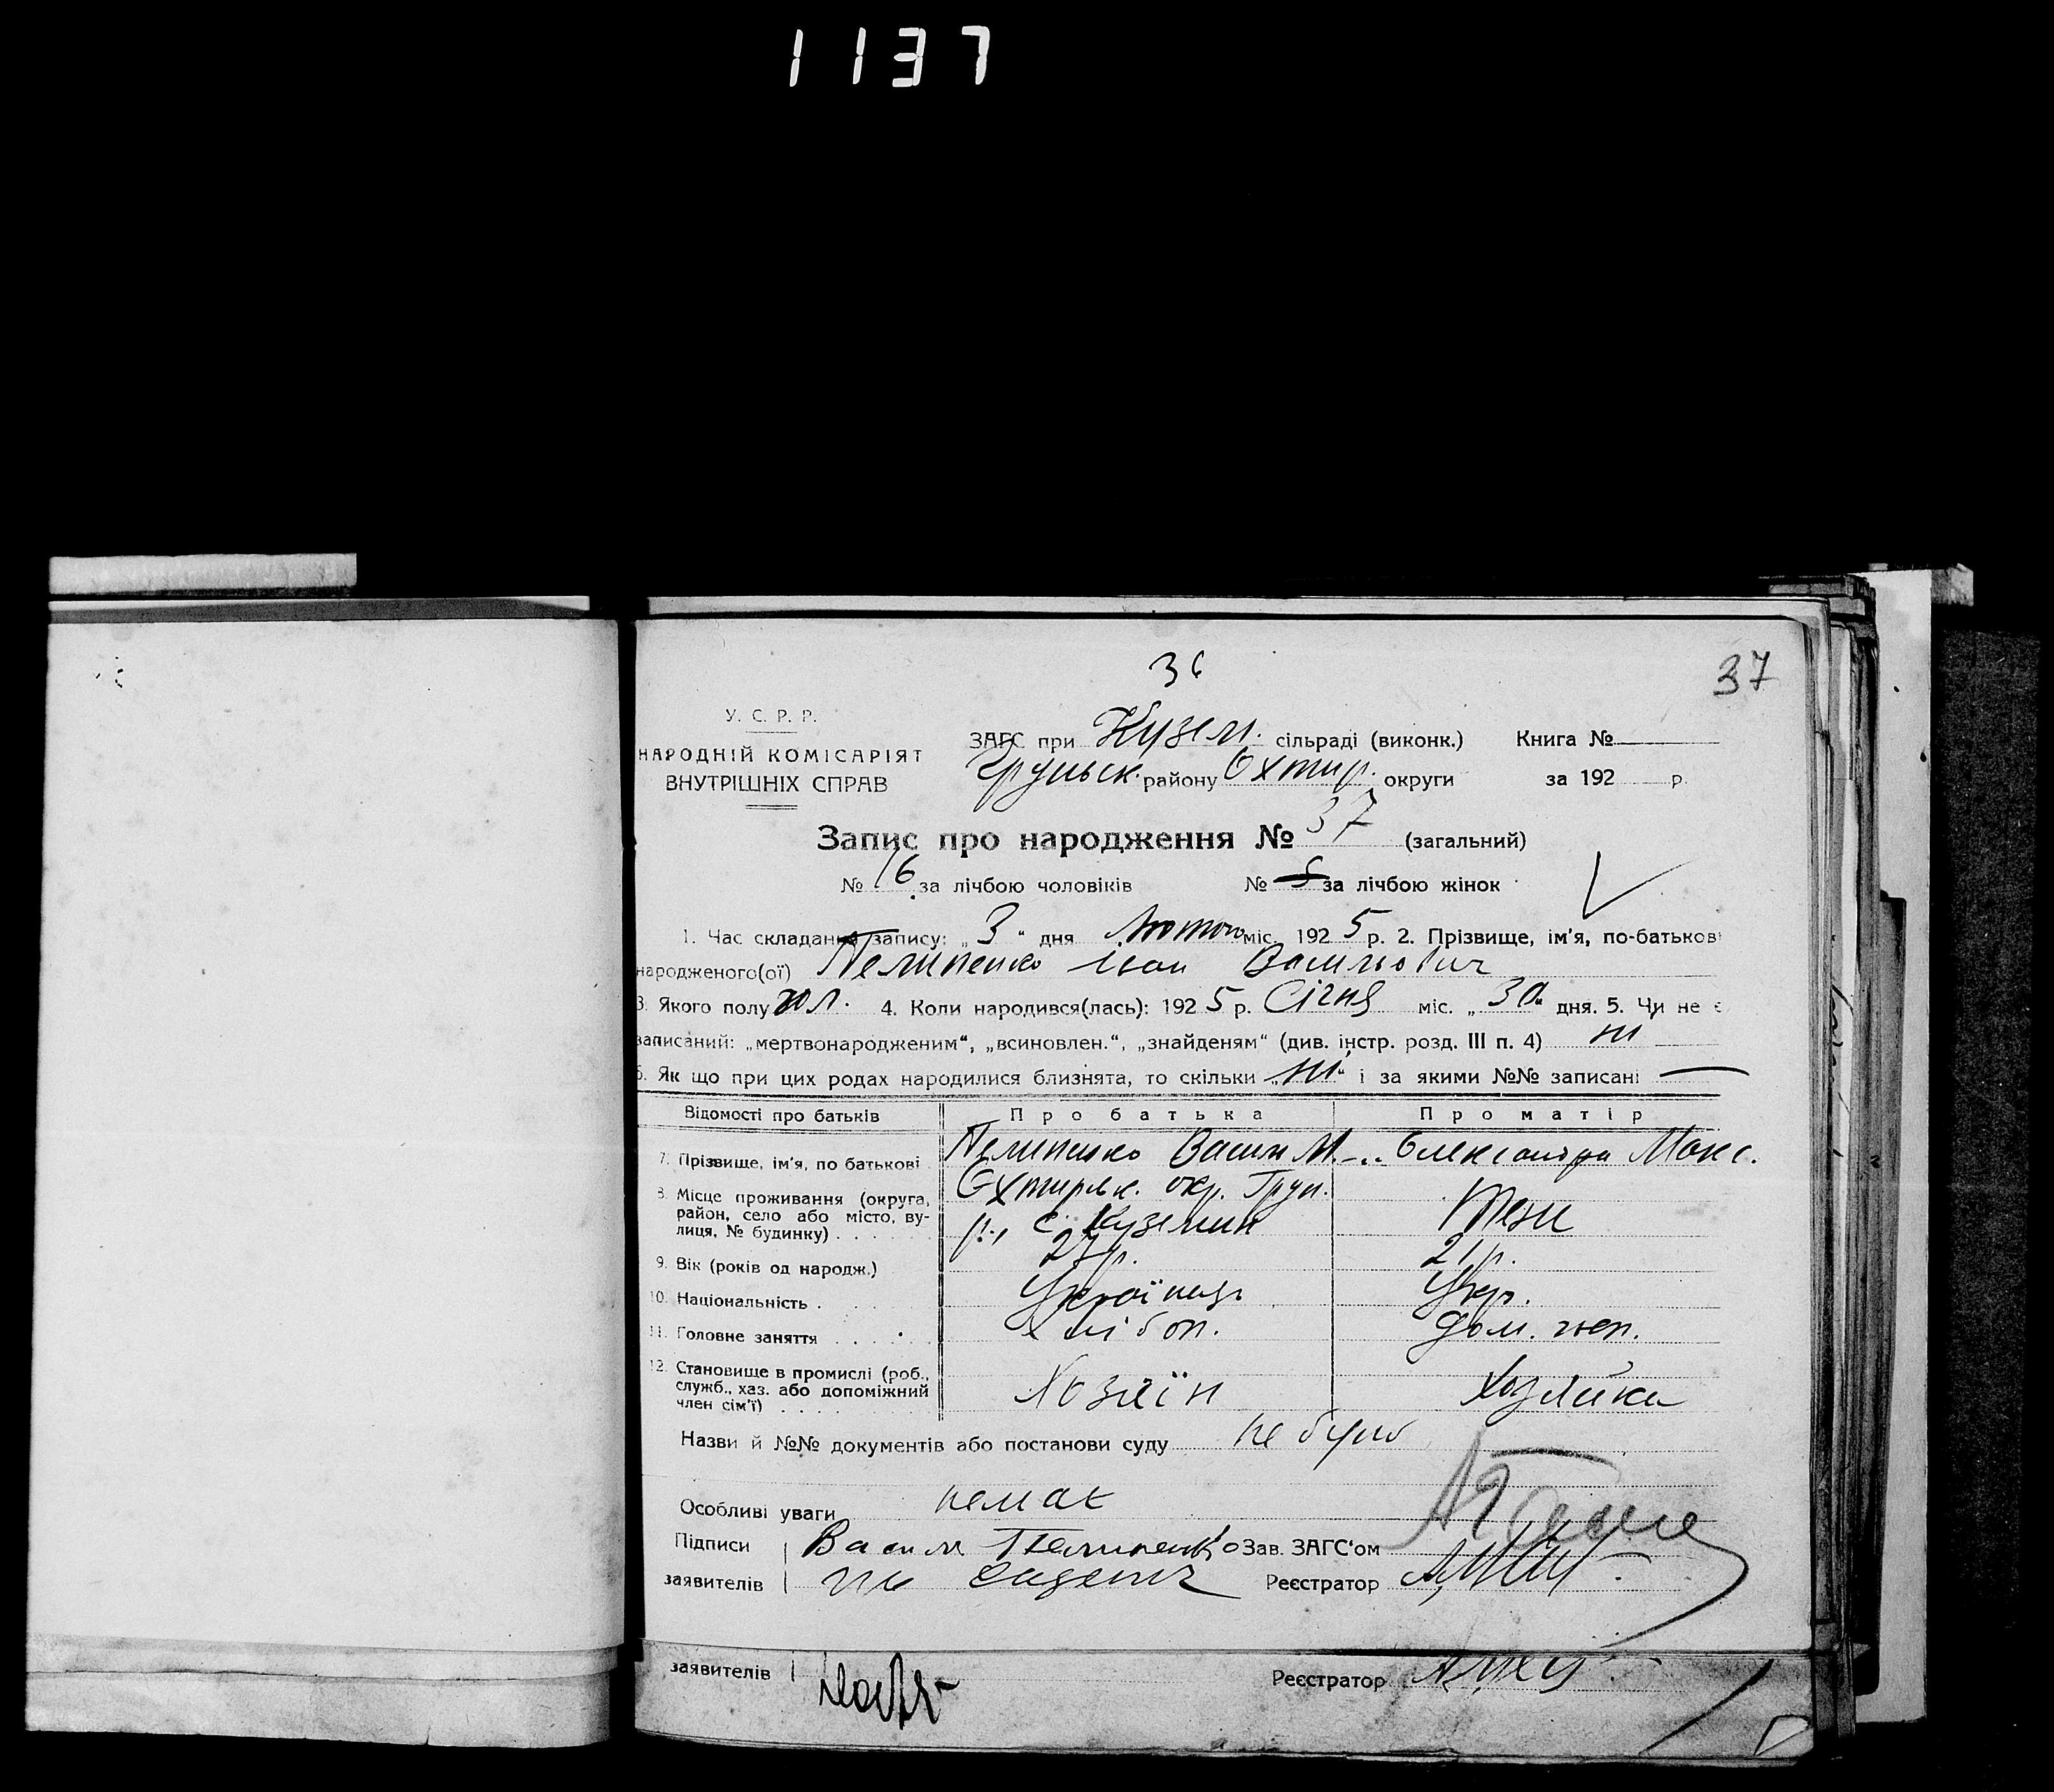 1137
36
37
У. С. Р. Р.
НАРОДНІЙ КОМІСАРІЯТ
ВНУТРІШНІХ СПРАВ
ЗАГС при Кузем. сільраді (виконк.) Книга №
Грунськ. району Охтир. округи за 192 р.
Запис про народження № 37 (загальний)
№ 16 за лічбою чоловіків № за лічбою жінок
1. Час складання запису: „3“ дня Лютого міс. 1925 р. 2. Прізвище, ім'я, по-батькові
народженого(ої) Пелипенко Іван Васильович
3. Якого полу чол. 4. Коли народився(лась): 1925 р. Січня міс. „30“ дня. 5. Чи не є
записаний: „мертвонародженим“, „всиновлен.“, „знайденям“ (див. інстр. розд. III п. 4) ні
6. Як що при цих родах народилися близнята, то скільки „ні“ і за якими №№ записані —
Відомості про батьків Про батька Про матір
7. Прізвище, ім'я, по батькові Пелипенко Васил М. -„- Олександра Макс.
8. Місце проживання (округа, район, село або місто, вулиця, № будинку) Охтирськ. окр. Грун. р., с. Куземин
9. Вік (років од народж.) 27 р. 21 р.
10. Національність Українець Укр.
11. Головне заняття хлібоп. дом. госп.
12. Становище в промислі (роб., служб., хаз. або допоміжний член сім'ї) Хозяїн Хозяйка
Назви й №№ документів або постанови суду не було
Особливі уваги немає
Підписи Васил Пелипенко Зав. ЗАГС'ом
заявителів Реєстратор
заявителів Реєстратор